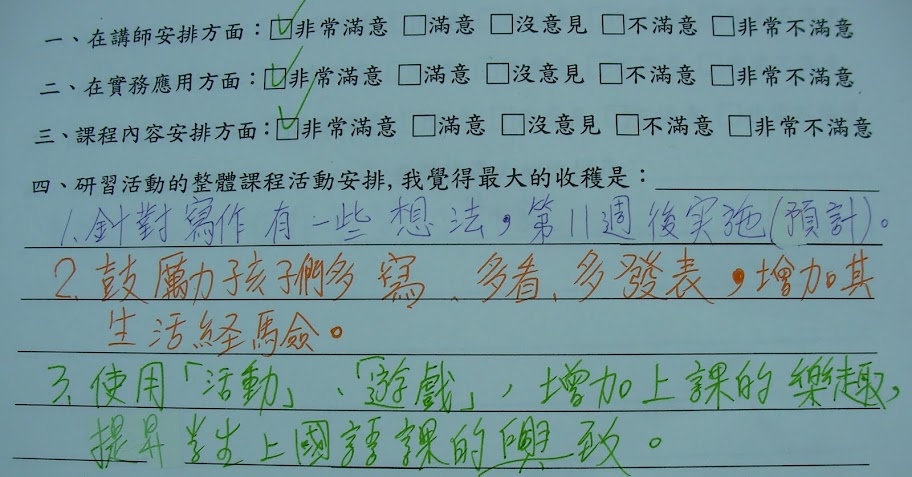 一、在講師安排方面：☑非常滿意 □滿意 □沒意見 □不滿意 □非常不滿意
二、在實務應用方面：☑非常滿意 □滿意 □沒意見 □不滿意 □非常不滿意
三、課程內容安排方面：☑非常滿意 □滿意 □沒意見 □不滿意 □非常不滿意
四、研習活動的整體課程活動安排,我覺得最大的收穫是：
1.針對寫作有一些想法，第11週後实施(預計)。
2.鼓勵孩子們多寫、多看、多發表，增加其
生活経驗。
3.使用「活動」、「遊戲」，增加上課的樂趣，
提昇学生上國語課的興致。